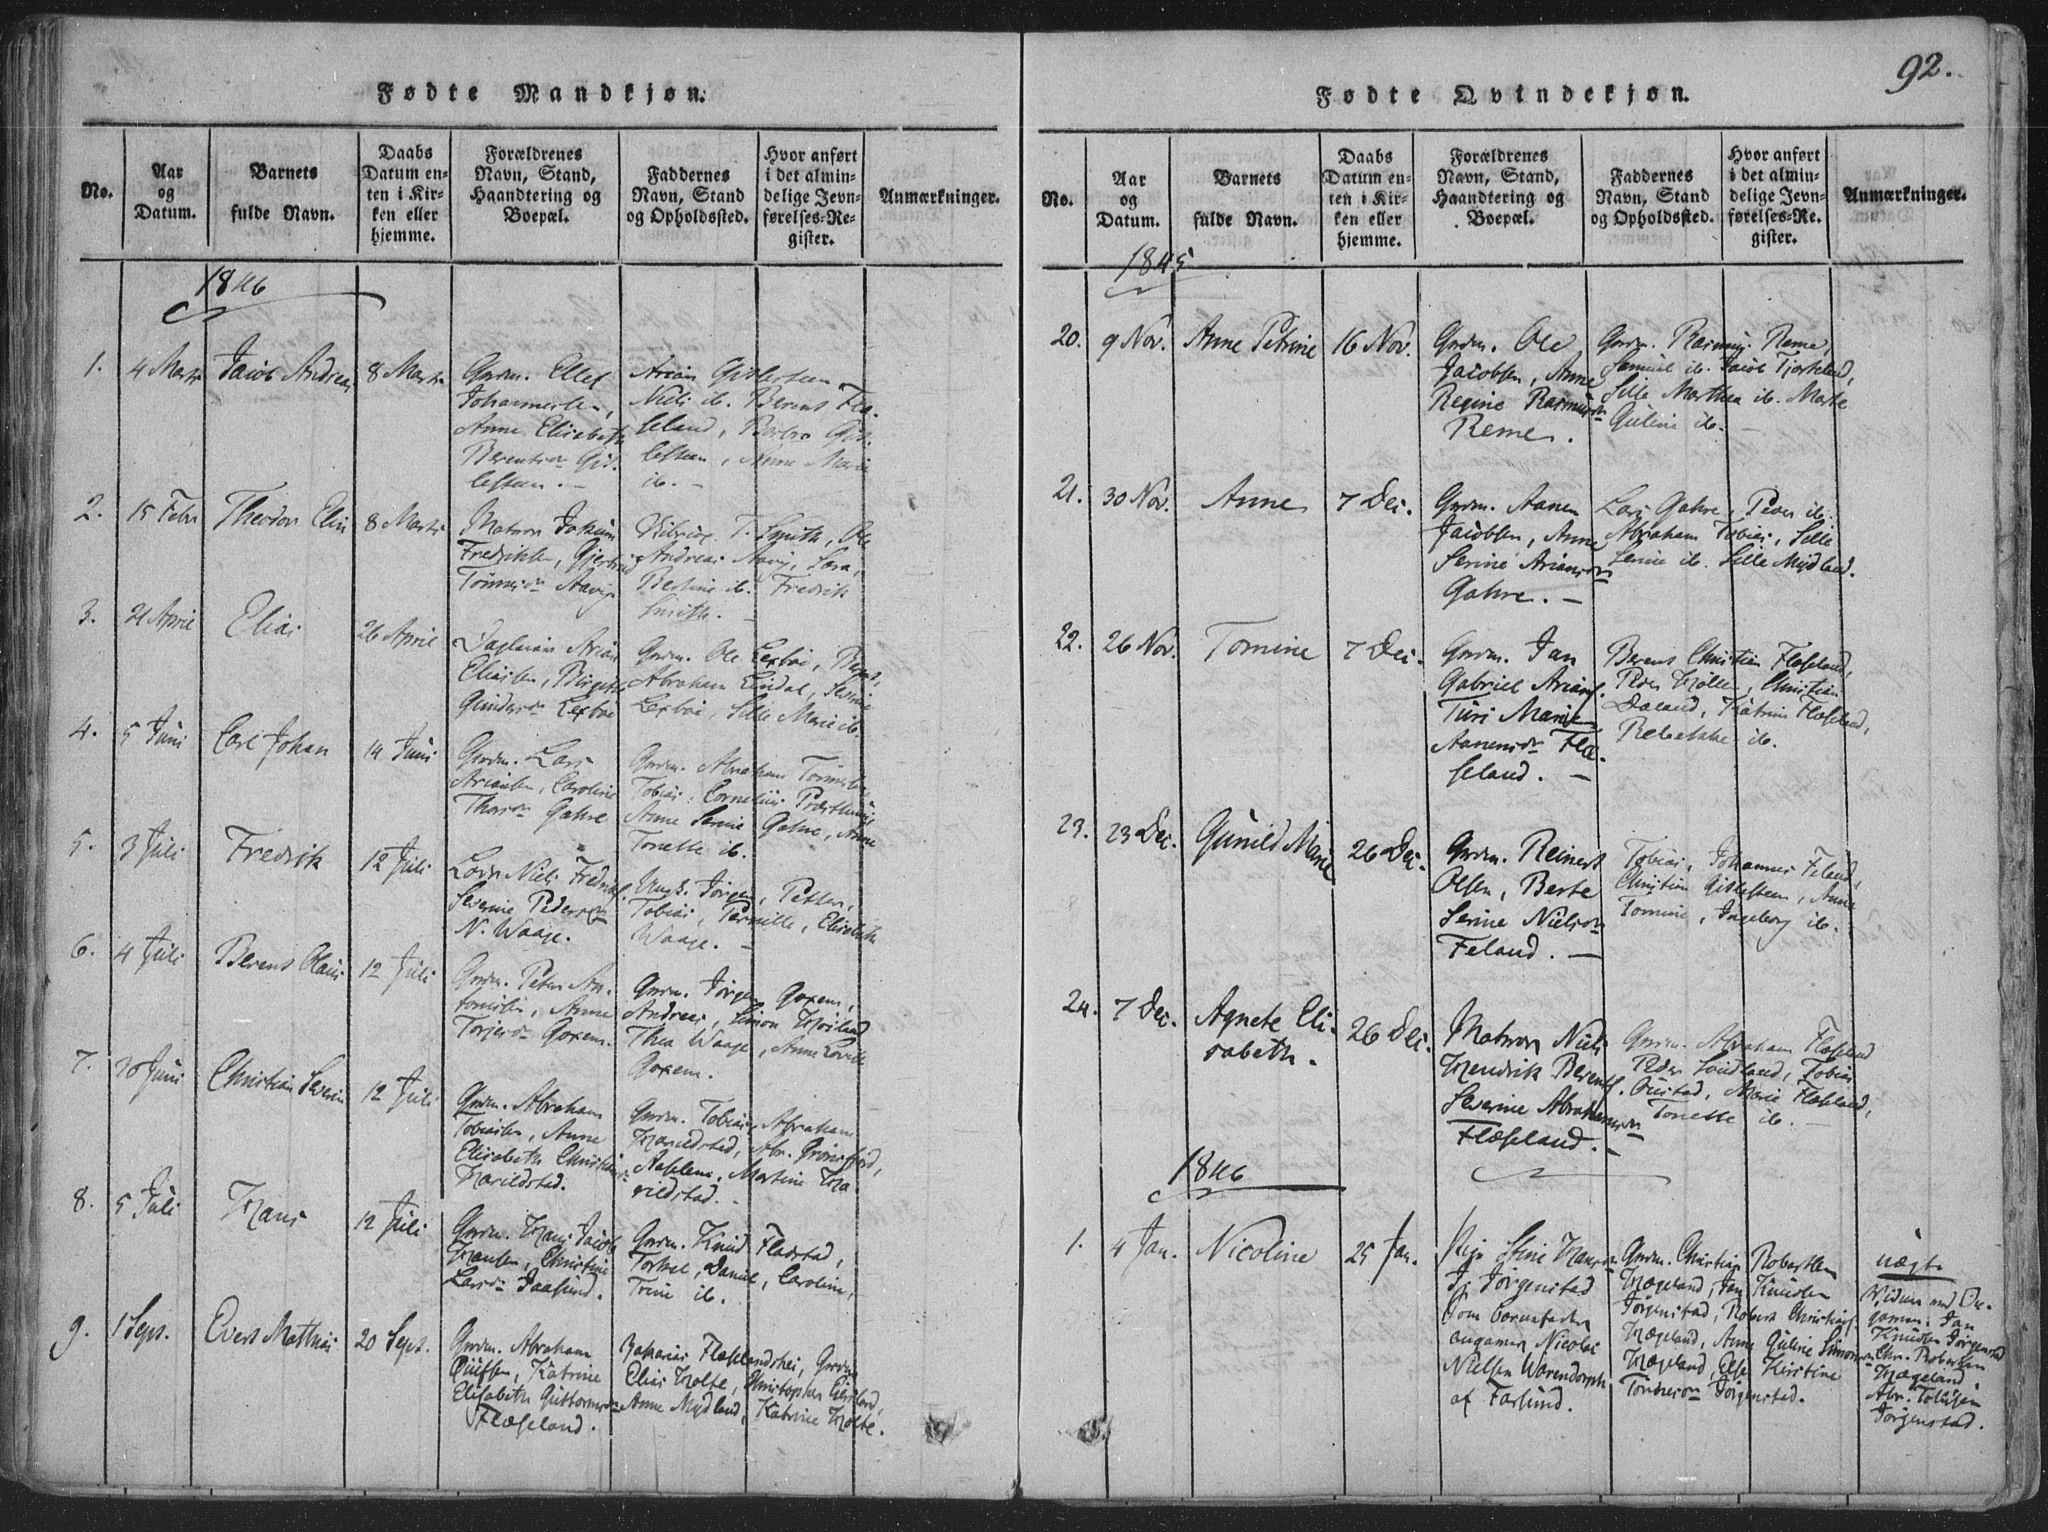 Fødte Mandkjøn.
No.
Aar
og
Datum.
Barnets
fulde Navn.
Daabs
Datum en-
ten i Kir-
ken eller
hjemme.
Forældrenes
Navn, Stand,
Haandtering og
Boepæl.
Faddernes
Navn, Stand
og Opholdssted.
Hvor anført
i det almin-
delige Jevn-
førelses-Re-
gister.
Anmærkninger.
1846
1.
4 Marts
Jacob Andreas
8 Marts
Gmdm. Ellef
Johannesen,
Anne Elisabeth
Berentsdr
Arian
Niels ib. Berent Flæ-
seland, Barbro
Anne Marie
ib. -
2.
15 Febr
Theodor
8 Marts
Matros
Fredriksen,
T. Smith, Ole
Andreas
ib. Fredrik
Smith. -
3.
21 April
Elias
26 April
Arian
Eliassen,
Gmdm. Ole
Abraham
Sille Marie ib.
4.
5 Juni
Carl Johan
14 Juni
Gmdm. Lars
Ariansen, Caroline
Gahre
Gmdm. Abraham
Tobias, Cornelius
Anne Serine Gahre, Anne
Tonette ib.
5.
3 Juli
Fredrik
12 Juli
Lods Niels
Severine Peders
N. Waage.
Ungk. Jørgen, Petter,
Tobias, Pernille, Elisabeth
Waage. -
6.
4 Juli
Berent Olaus
12 Juli
Gmdm. Peter An-
Anne
Goxem.
Gmdm. Jørgen Goxem,
Andreas, Simon
Thea Waage, Anne
Goxem.
7.
30 Juni
Christian Severin
12 Juli
Gmdm. Abraham
Tobiassen, Anne
Elisabeth
Harildstad.
Gmdm. Tobias, Abraham
Harildstad, Abr.
Martine Ha-
rildstad. -
8.
5 Juli
Hans
12 Juli
Gmdm. Hans Jacob
Hansen, Christine
Larsdr
Gmdm. Knud
Torkel, Daniel, Caroline,
Trine ib.
9.
1 Sept.
Evert Mathias
20 Sept.
Gmdm. Abraham
Katrine
Elisabeth Guttormsdr
Flæseland.
Zakarias
Elias Holte, Christopher
Anne Mydland, Katrine Holte.
92.
Fødte Qvindekjøn.
No.
Aar
og
Datum.
Barnets
fulde Navn.
Daabs
Datum en-
ten i Kir-
ken eller
hjemme.
Forældrenes
Navn, Stand,
Haandtering og
Boepæl.
Faddernes
Navn, Stand
og Opholdssted.
Hvor anført
i det almin-
delige Jevn-
førelses-Re-
gister.
Anmærkninger.
1845
20.
9 Nov.
Anne Petrine
16 Nov.
Gmdm. Ole
Jacobsen, Anne
Regine Rasmusdr
Reme.
Gmdm. Rasmus Reme,
Samuel ib. Jacob Tjorteland,
Sille Marthea ib. Marte
Guline ib.
21.
30 Nov.
Anne
7 Dec.
Gmdm. Aanen
Jacobsen, Anne
Serine Ariansdr
Gahre. -
Lars Gahre, Peder ib.
Abraham Tobias, Sille
Serine ib. Sille Mydland.
22.
26 Nov.
Tomine
7 Dec.
Gmdm. Jan
Gabriel Arians.
Turi Marie
Aanensdr Flæ-
seland. -
Berent Christian Flæseland,
Peder Holte, Christian
Daland, Katrine Flæseland,
Rebekke ib.
23.
23 Dec.
Gunild Marie
26 Dec.
Gmdm. Reinert
Olsen, Berte
Serine Nielsdr
Feland. -
Tobias, Johannes Feland,
Christian Gislesteen, Anne
Tomine, Ingeborg ib.
24.
7 Dec.
Agnete Eli-
sabeth.
26 Dec.
Matros Niels
Hendrik Berents.
Severine Abrahamsdr
Flæseland. -
Gmdm. Abraham Flæseland
Peder Tobias
Marie Flæseland,
Tonette ib. -
1846
1.
4 Jan.
Nicoline
25 Jan.
Pige Stine Hansdr
Jørgenstad
Som barnefader
angaves Nicolai
Nielsen Warendorph
af Farsund.
Gmdm. Christian Robertsen
Hægeland, Jan Knudsen
Jørgenstad, Robert Christians.
Hægeland, Anne Guline Simonsdr
Hægeland, Else Kirstine
Tønnesdr Jørgenstad.
uægte
Vidner ved
Jan
Knudsen Jørgenstad
Chr. Robertsen
Hægeland
Abr.
Jørgenstad.